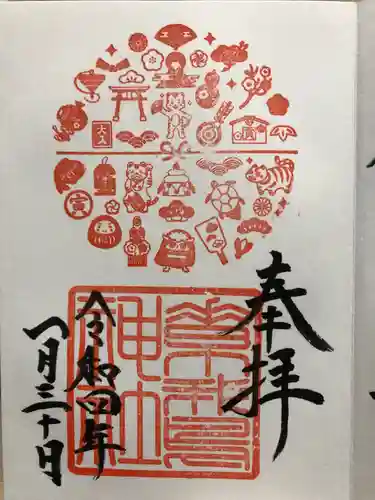 大入
寅
奉拝
神社
令和四年
一月三十日